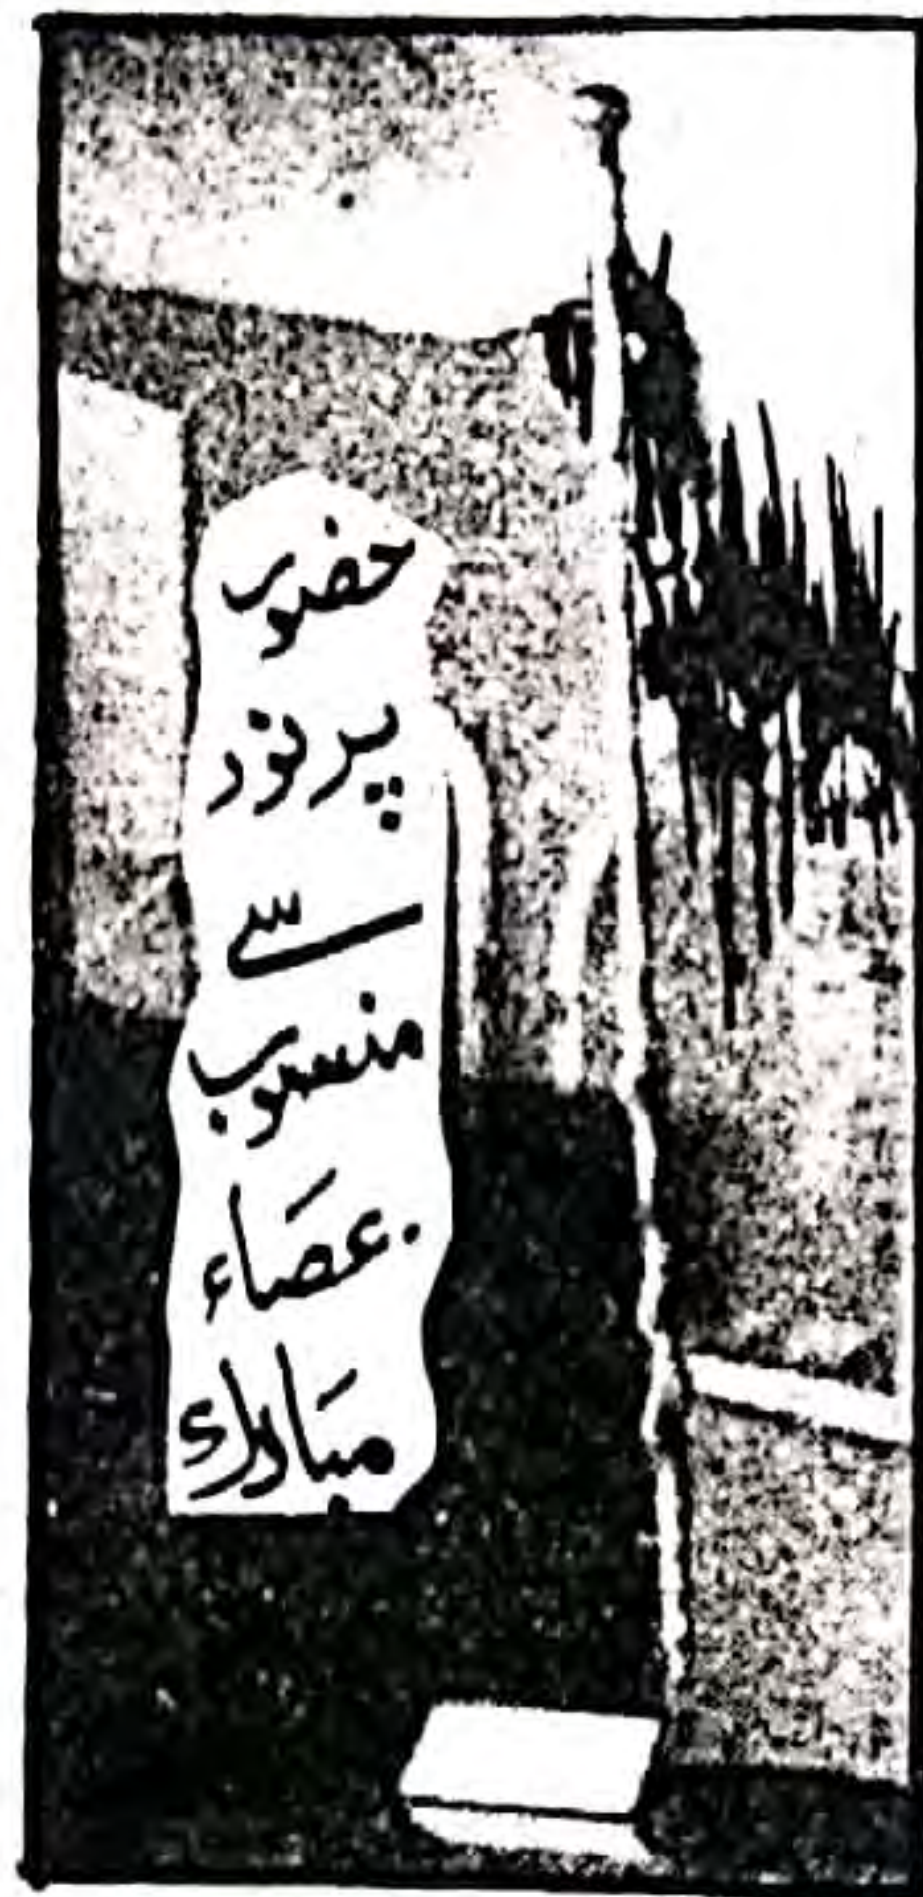 حضور
پر نور
سے
منسوب
عصاء
مبارک